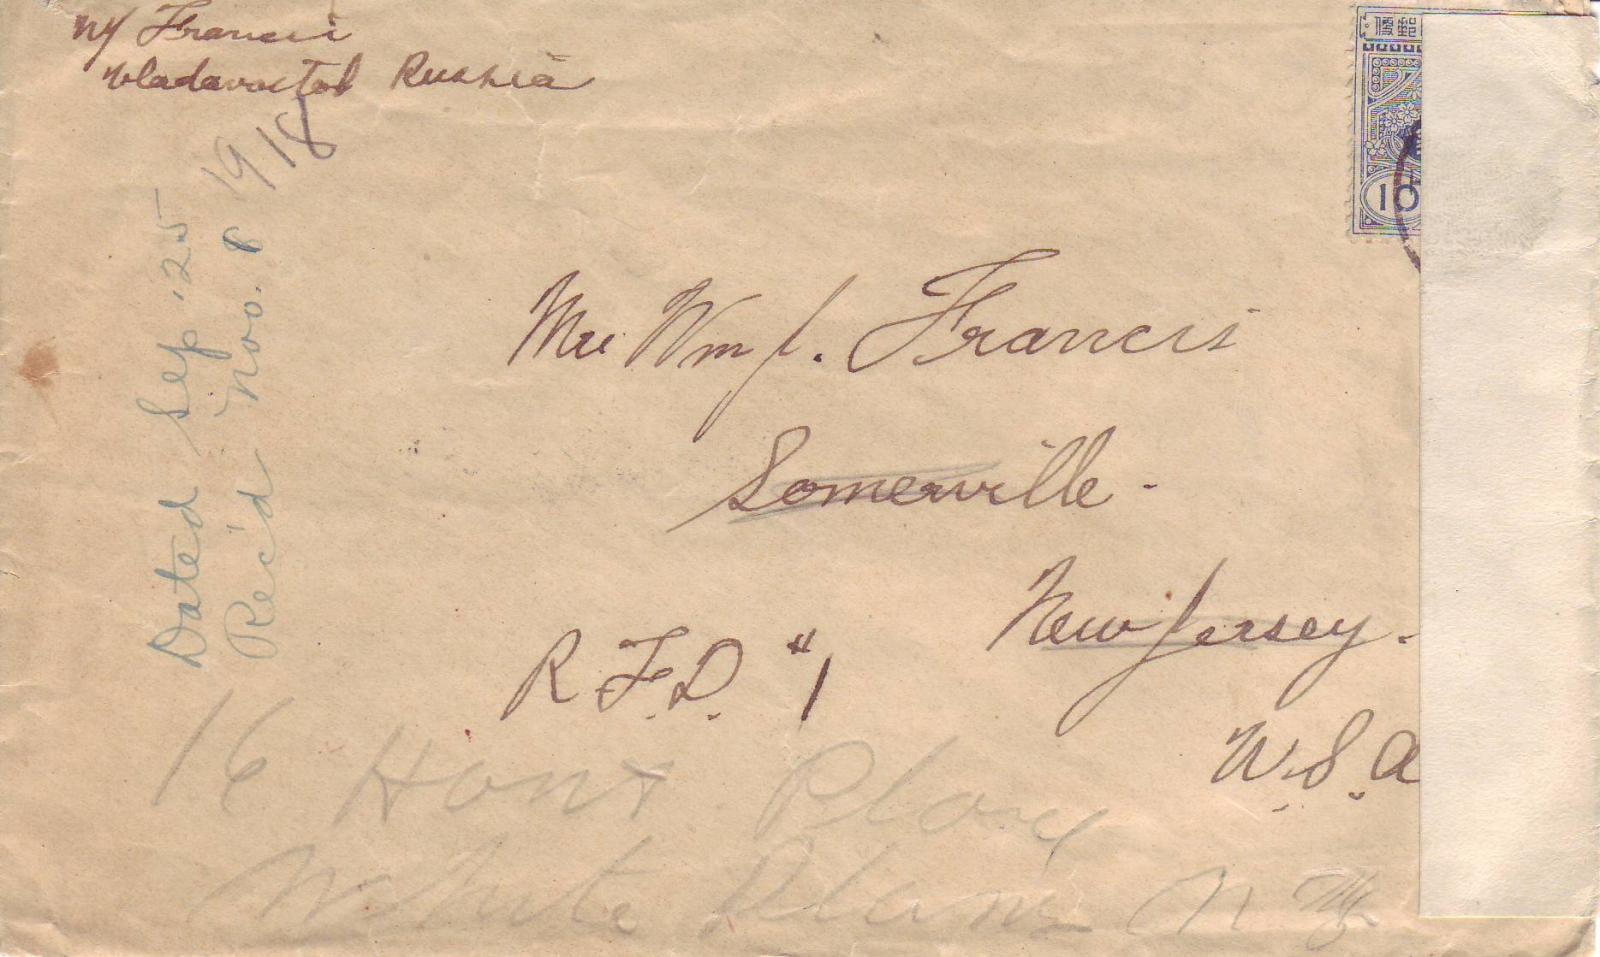 Francis
Vladavostol Russia
1918
Dated Sep. 25
Rec'd Nov. 8
郵便
10
Mr. Wm J. Francis
Somerville -
New Jersey.
R.F.D. #1
U.S.A
16 Place
White Plains N Y